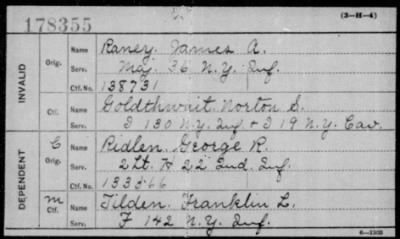 (3-H-4)
178355
INVALID
Orig.
Name Raney, James A.
Serv. Maj. 36 N.Y. Inf.
Ctf. No. 138731
Ctf.
Name Goldthwait, Norton S.
Serv. I 130 N.Y. Inf + I 19 N.Y. Cav.
DEPENDENT
C
Orig.
Name Ridlen, George R.
Serv. 2 Lt. H 22 Ind. Inf.
Ctf. No. 133566
M
Ctf.
Name Tilden, Franklin L.
Serv. F 142 N.Y. Inf.